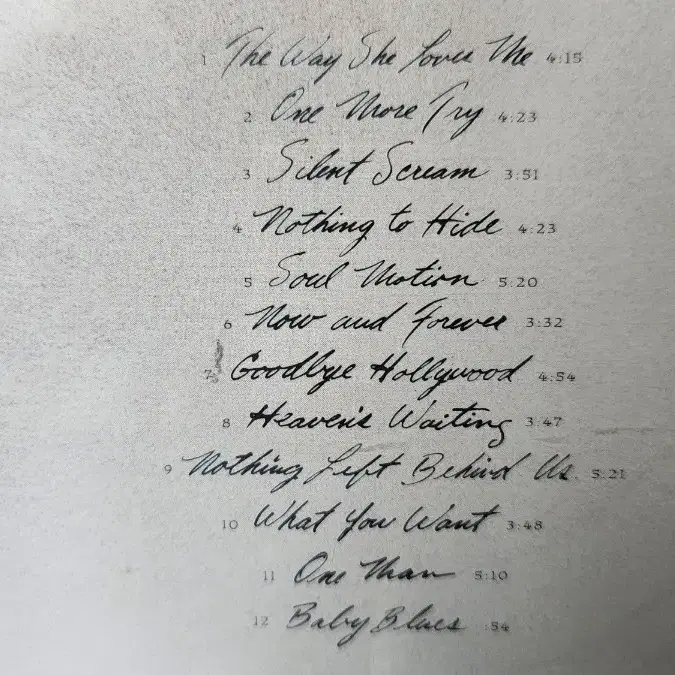 1 The Way She Loves Me 4:15
2 One More Try 4:23
3 Silent Scream 3:51
4 Nothing to Hide 4:23
5 Soul Motion 5:20
6 Now and Forever 3:32
7 Goodbye Hollywood 4:54
8 Heaven's Waiting 3:47
9 Nothing Left Behind Us 5:21
10 What You Want 3:48
11 One Man 5:10
12 Baby Blues :54